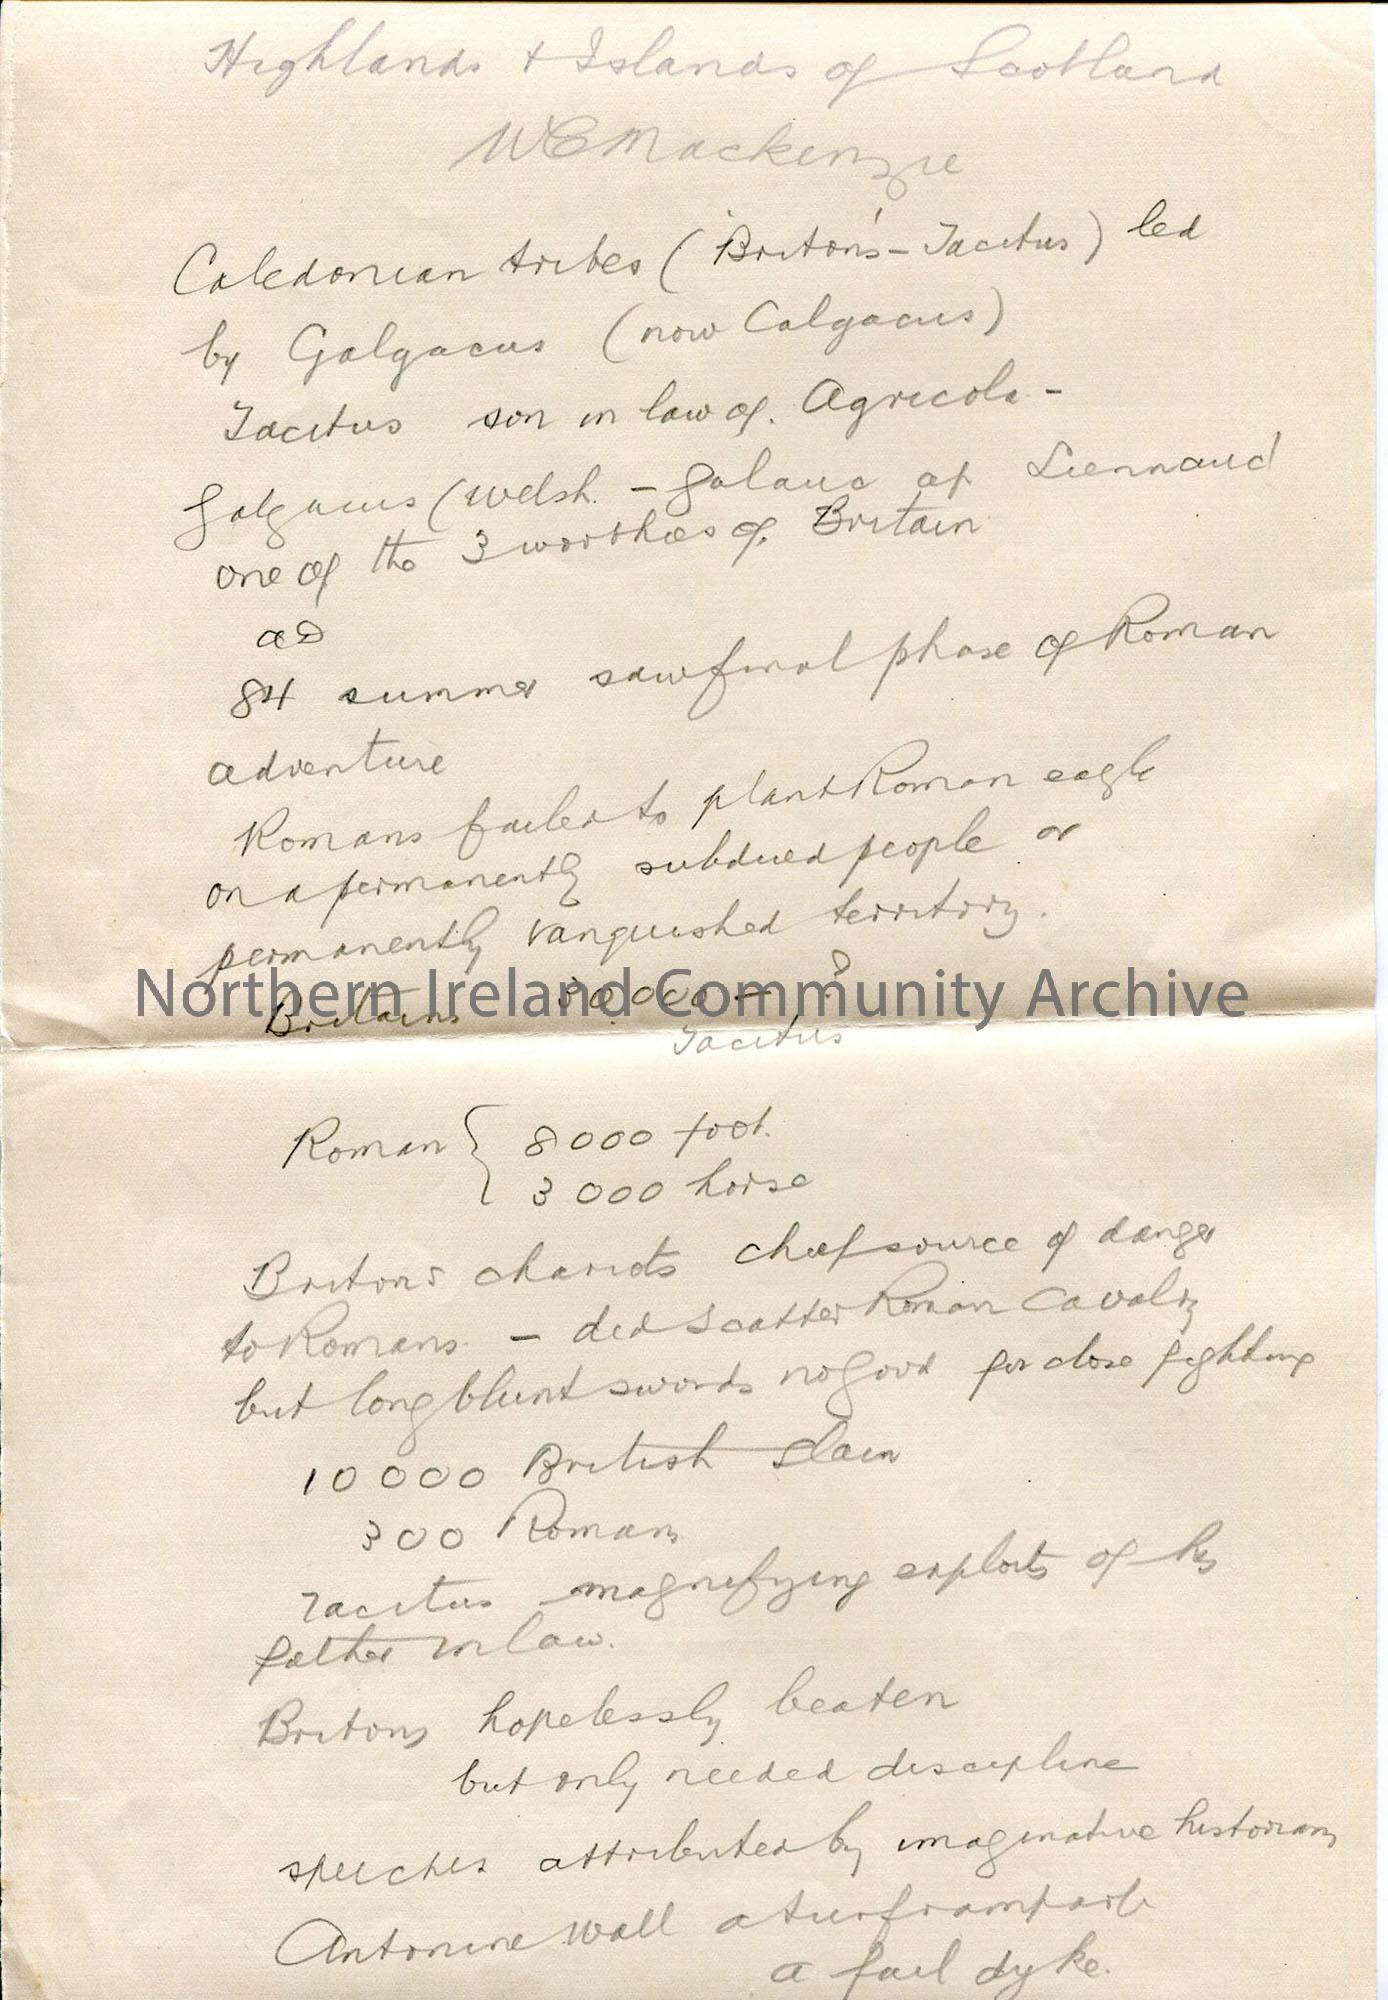 Highlands & Islands of Scotland
W C Mackenzie
Caledonian tribes ('Britons' - Tacitus) led
by Galgacus (now Calgacus)
Tacitus son in law of. Agricola -
Galgacus (Welsh. - Galauc ap Liennaud
one of the 3 worthies of. Britain
AD
84 summer saw final phase of Roman
adventure
Romans failed to plant Roman eagle
on a permanently subdued people or
permanently vanquished territory.
Britains 30.000 - ?
Tacitus
Northern Ireland Community Archive
Roman { 8000 foot.
3000 horse
Britons chariots chief source of danger
to Romans. - did scatter Roman Cavalry
but long blunt swords no good for close fighting
10000 British slain
300 Romans
Tacitus magnifying exploits of his
father in law.
Britons hopelessly beaten
but only needed discipline
speeches attributed by imaginative historians
Antonine Wall a turf rampart
a fail dyke.